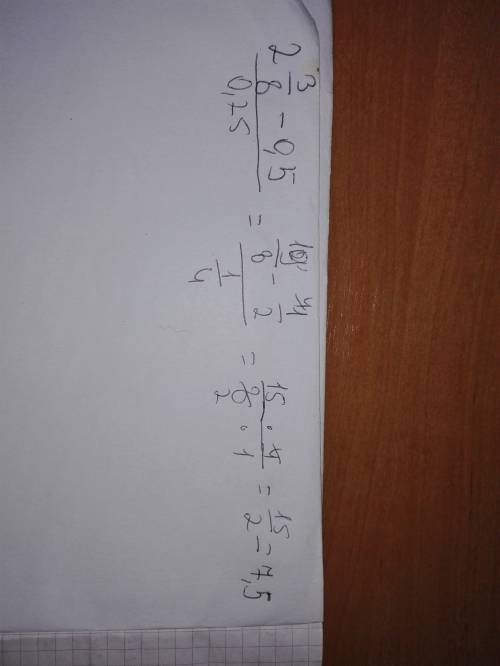 2 3/8 - 0,5 / 0,25 = 19/8 - 1/2 / 1/4 = 15/8 · 4/1 = 15/2 = 7,5